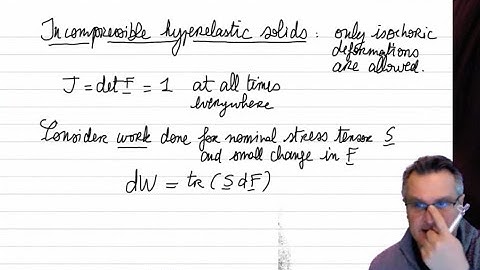 Incompressible hyperelastic solids : only isochoric
deformations
are allowed.
J = det F = 1 at all times
everywhere
Consider work done for nominal stress tensor S
and small change in F
dW = tr (S dF)